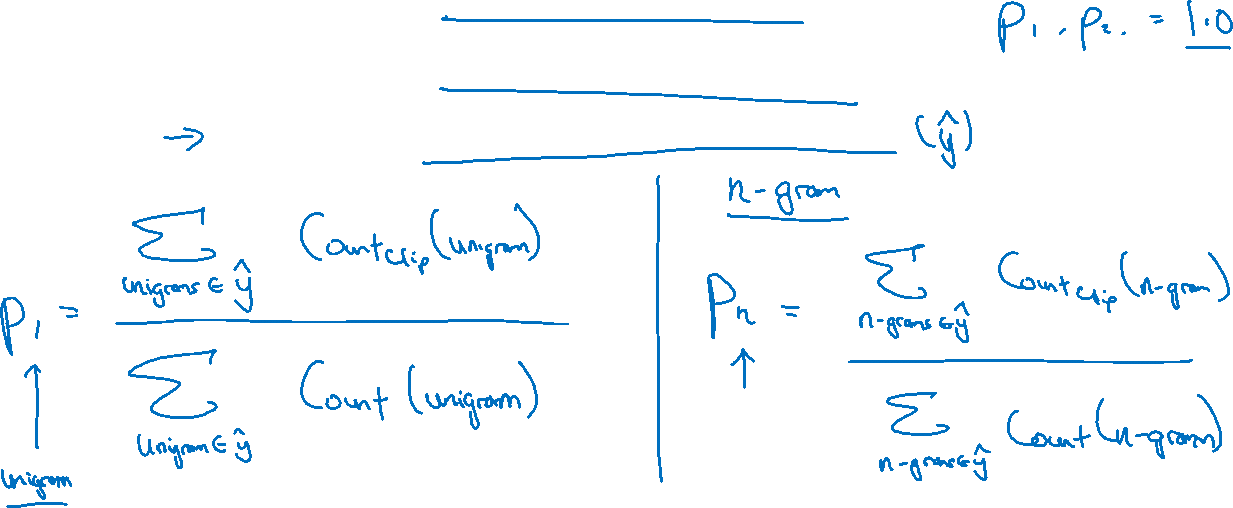 P₁, P₂. = 1.0
→ (ŷ)
n-gram
P₁ = ∑ unigrams ∈ ŷ Count clip (unigram) / ∑ unigram ∈ ŷ Count (unigram)
Pₙ = ∑ n-grams ∈ ŷ Count clip (n-gram) / ∑ n-grams ∈ ŷ Count (n-gram)
↑ ↑
unigram